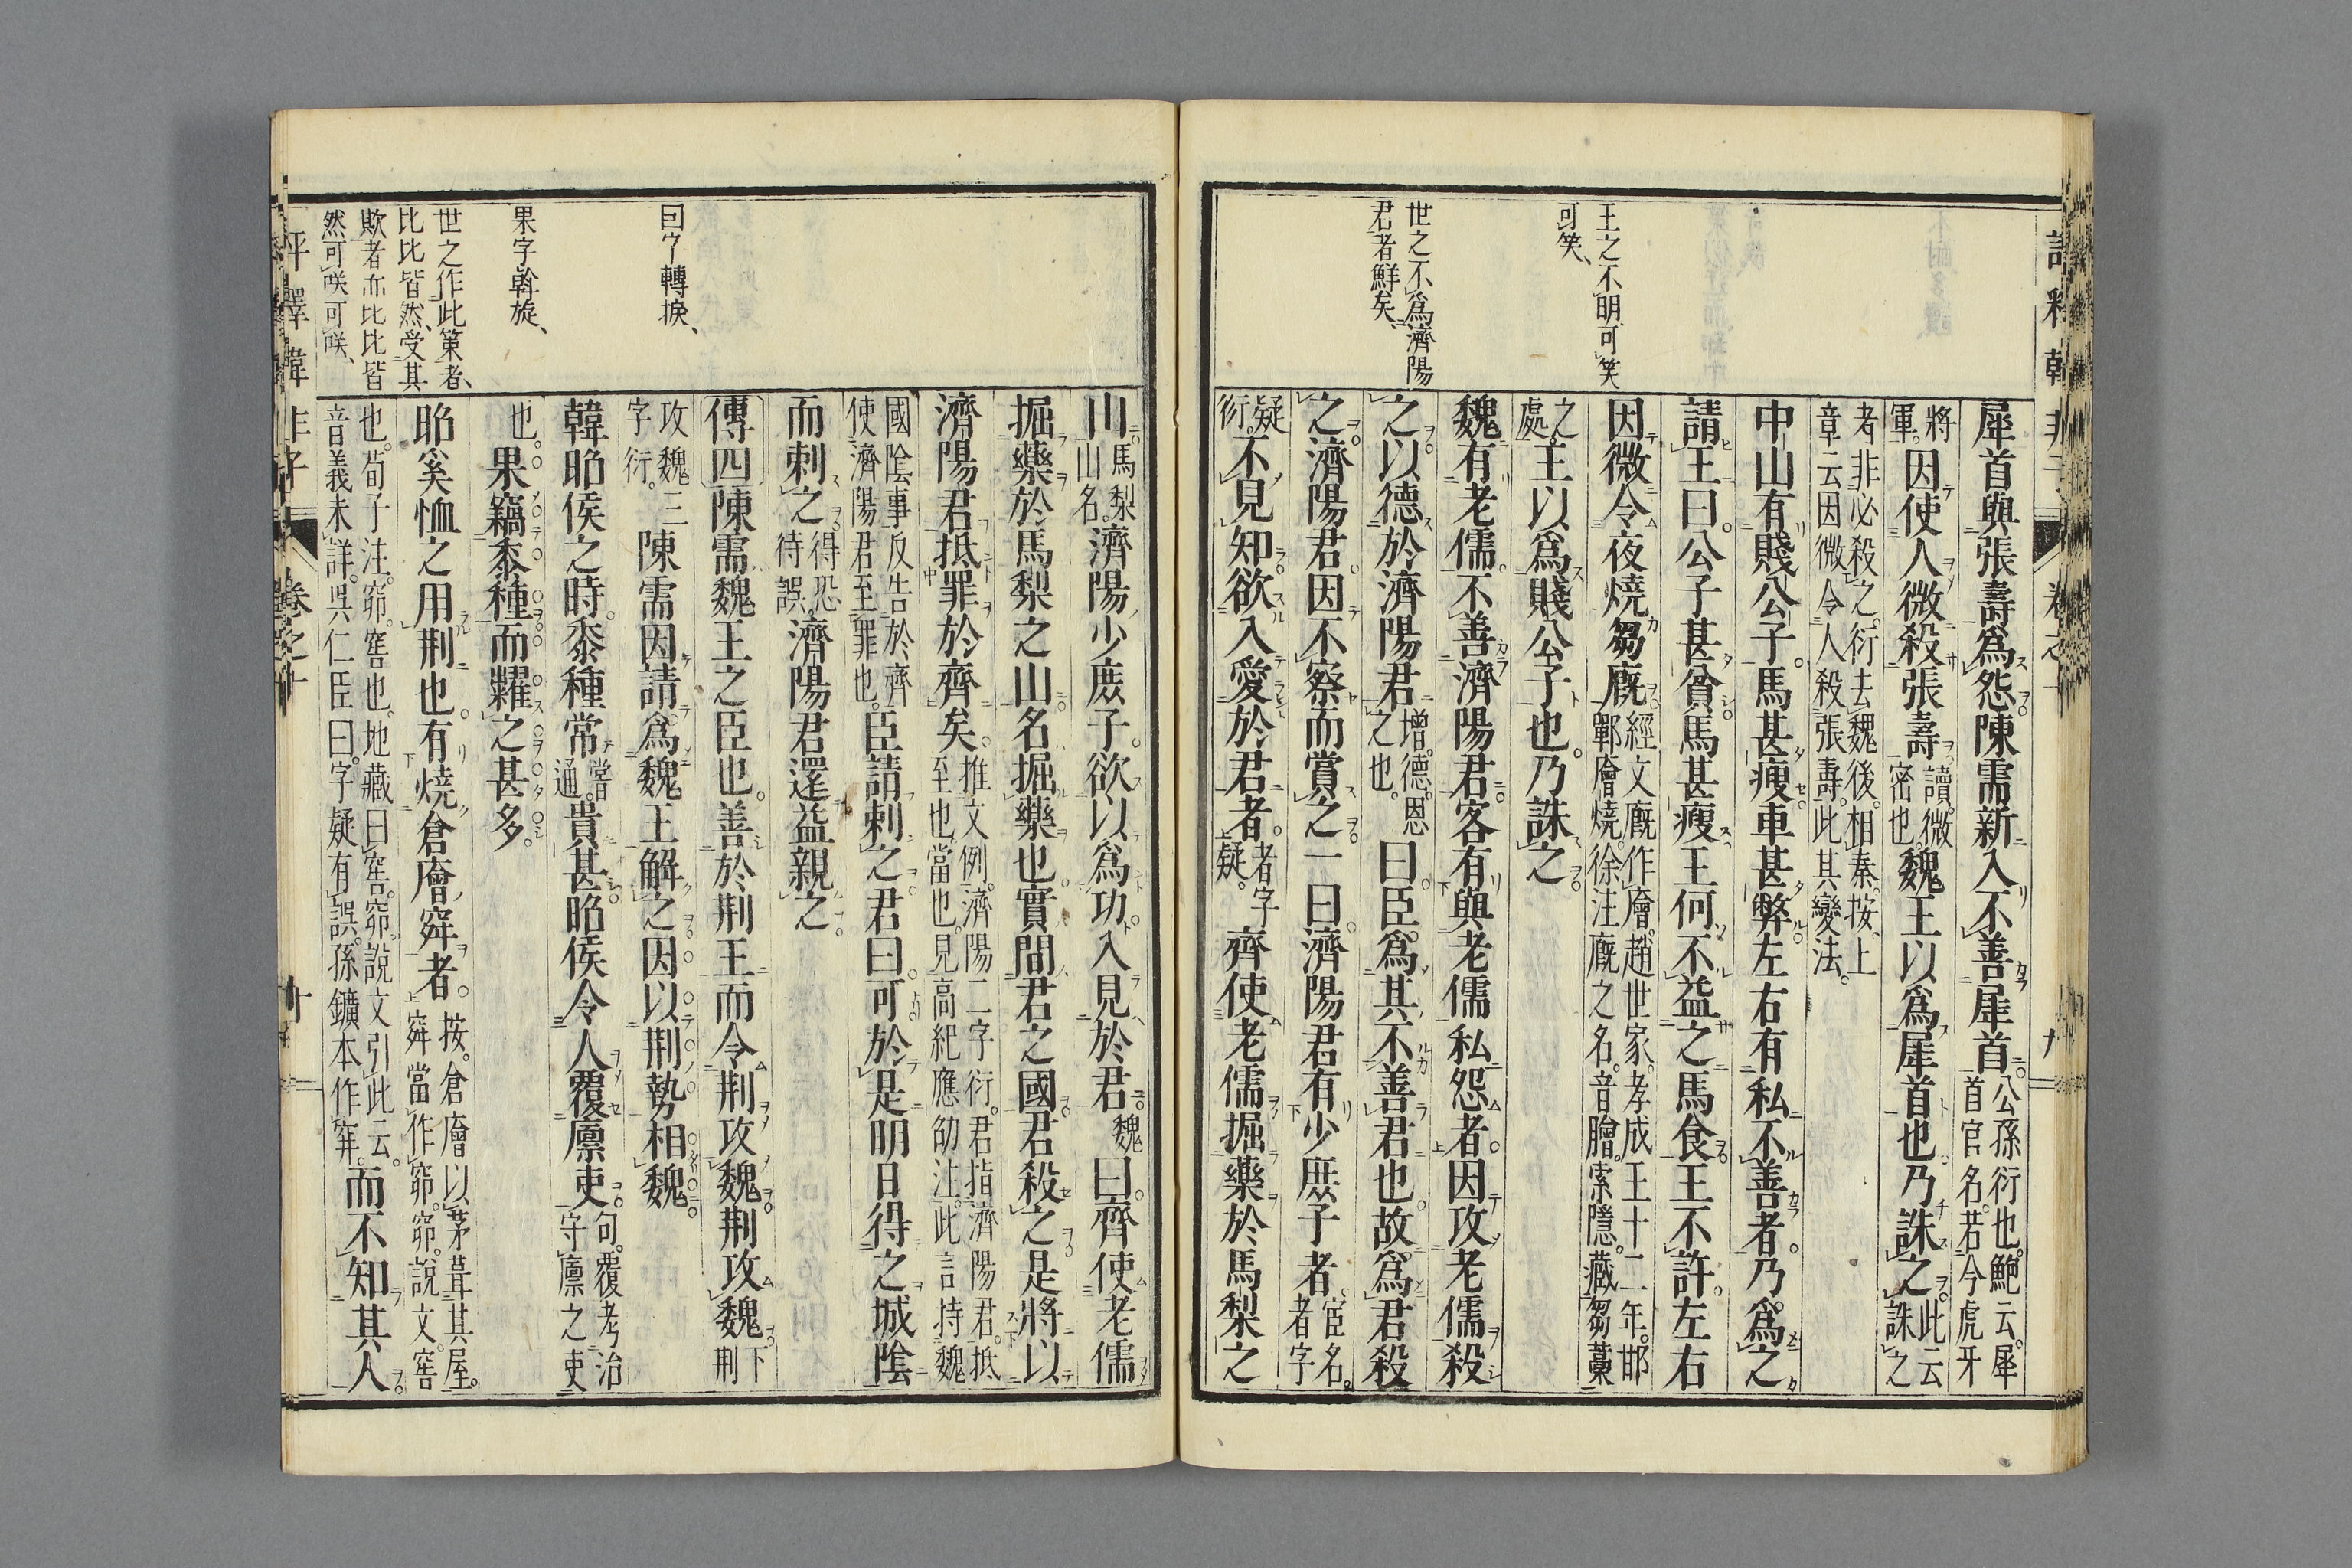 犀首與張壽爲怨陳需新入不善犀首公孫衍也鮑云犀首官名若今虎牙
將軍因使人微殺張壽讀微密也魏王以爲犀首也乃誅之此云誅之
者非必殺之衍去魏後相秦按上章云因微令人殺張壽此其變法
中山有賤公子馬甚瘦車甚弊左右有私不善者乃爲之
請王曰公子甚貧馬甚瘦王何不益之馬食王不許左右
因微令夜燒芻廐經文廐作廥趙世家孝成王十二年邯鄲廥燒徐注廐之名音膾索隱藏芻藁
之處王以爲賤公子也乃誅之
魏有老儒不善濟陽君客有與老儒私怨者因攻老儒殺
之以德於濟陽君增德恩之也曰臣爲其不善君也故爲君殺
之濟陽君因不察而賞之一曰濟陽君有少庶子者宦名者字
疑衍不見知欲入愛於君者者字疑齊使老儒掘藥於馬梨之
王之不明可笑
可笑
世之不爲濟陽
君者鮮矣
山馬梨山名濟陽少庶子欲以爲功入見於君魏曰齊使老儒
掘藥於馬梨之山名掘藥也實間君之國君殺之是將以
濟陽君抵罪於齊矣推文例濟陽二字衍君指濟陽君抵至也當也見高紀應劭注此言持魏
國陰事反告於齊使濟陽君至罪也臣請刺之君曰可於是明日得之城陰
而刺之得恐待誤濟陽君還益親之
傳四陳需魏王之臣也善於荆王而令荆攻魏荆攻魏下荆
攻魏三字衍陳需因請爲魏王解之因以荆勢相魏
韓昭侯之時黍種常當通貴甚昭侯令人覆廩吏句覆考治守廩之吏
也果竊黍種而糶之甚多
昭奚恤之用荆也有燒倉廥窌者按倉廥以茅葺其屋窌當作窌窌說文窖
也荀子注窌窖也地藏曰窖窌說文引此云音義未詳呉仁臣曰字疑有誤孫鑛本作穽而不知其人
曰字轉捩
果字斡旋
世之作此策者
比比皆然受其
欺者亦比比皆
然可咲可咲
卷之十